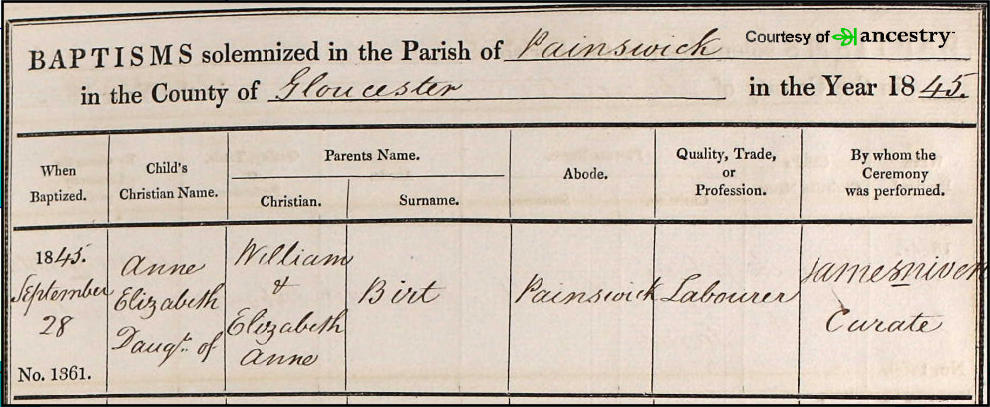 BAPTISMS solemnized in the Parish of Painswick
Courtesy of ancestry
in the County of Gloucester in the Year 1845.
When Baptized.
Child's Christian Name.
Parents Name.
Christian.
Surname.
Abode.
Quality, Trade, or Profession.
By whom the Ceremony was performed.
1845.
September
28
No. 1361.
Anne
Elizabeth
Daugtr. of
William
&
Elizabeth
Anne
Birt
Painswick
Labourer
James
Curate